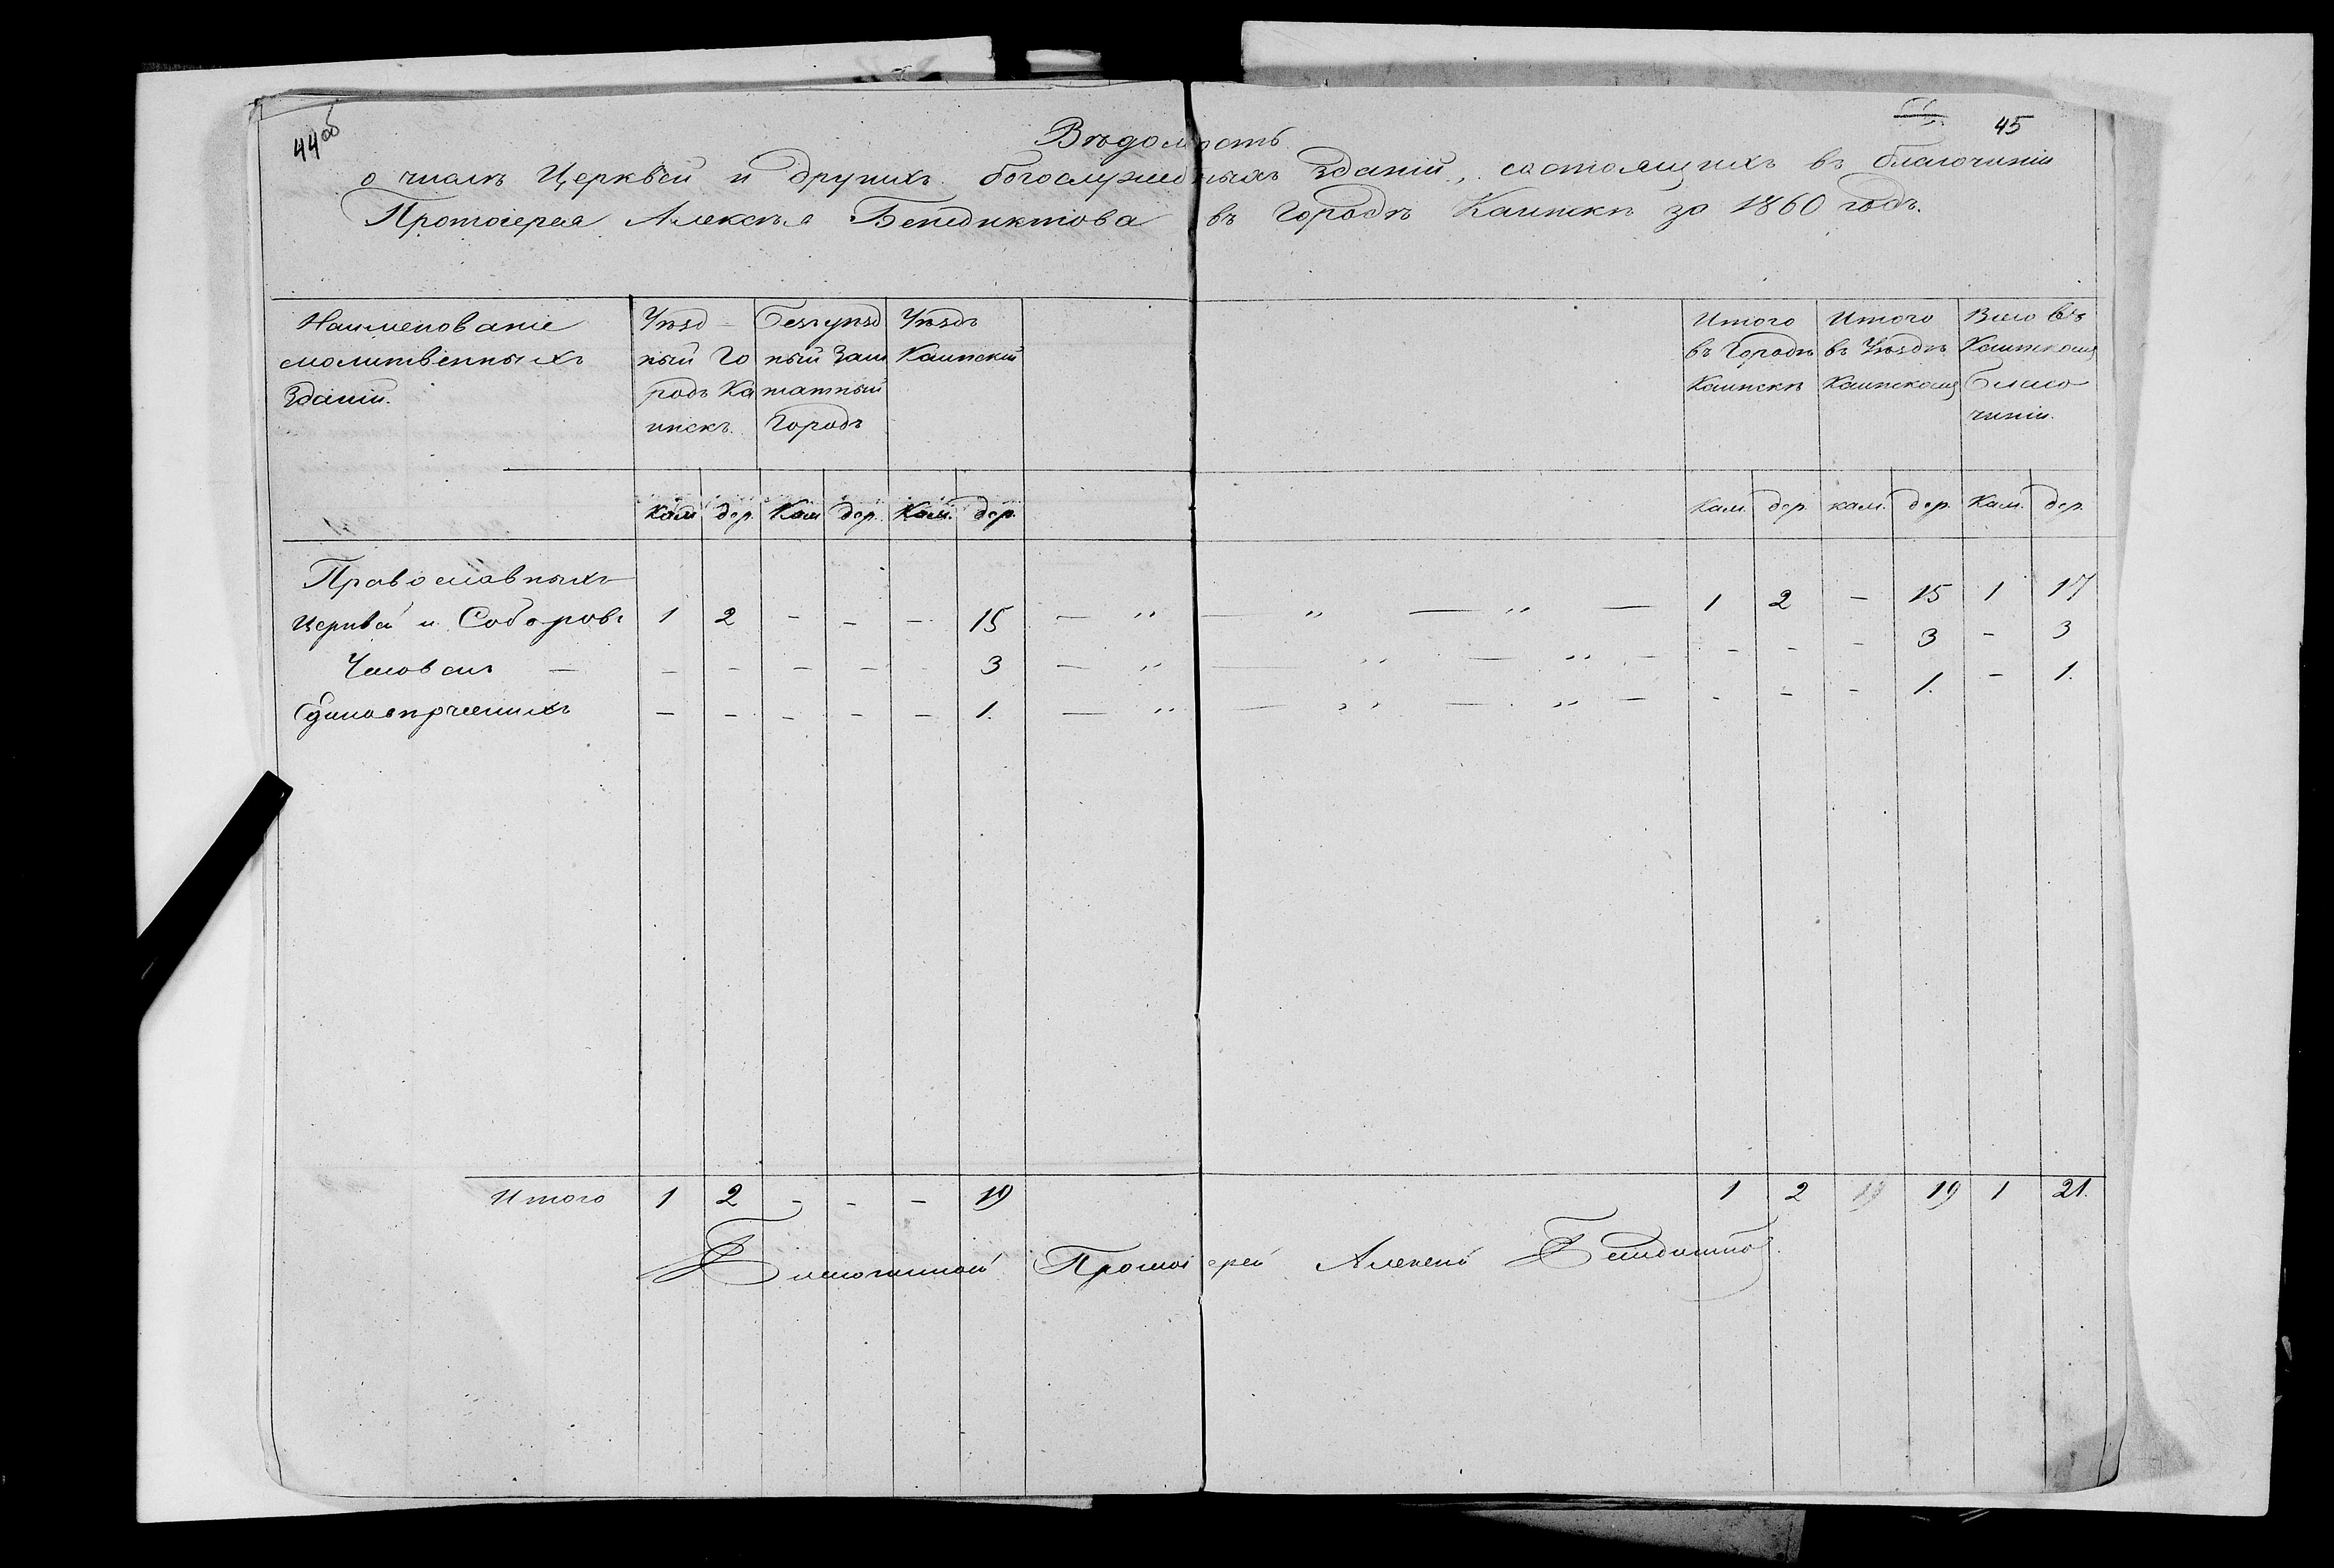 44об
45
Вѣдомость
о числѣ Церквей и другихъ богослужебныхъ зданій, состоящихъ въ благочиніи
Протоіерея Алексѣя Бенедиктова въ Городѣ Каинскѣ за 1860 годъ.
Наименованіе
молитвенныхъ
зданій.
Уѣзд-
ный Го
родъ Ка
инскъ.
Безъуѣзд
ный Заш
татный
Городъ
Уѣздъ
Каинскій
Итого
въ Городѣ
Каинскѣ
Итого
въ Уѣздѣ
Каинскомъ
Всего въ
Каинскомъ
Благо
чиніи.
Кам. дер. Кам дер. Кам. дер. Кам. дер. кам. дер. Кам. дер.
Православныхъ
Церквей и Соборовъ 1 2 - - - 15 — " — " — " — 1 2 - 15 1 17
Часовенъ — - - - - - 3 — " — " — " — - - - 3 - 3
Единовѣрческихъ - - - - - 1. — " — " — " — - - - 1. - 1.
Итого 1 2 - - - 19 1 2 19 19 1 21.
Благочинный Протоіерей Алексей Бенедиктов.